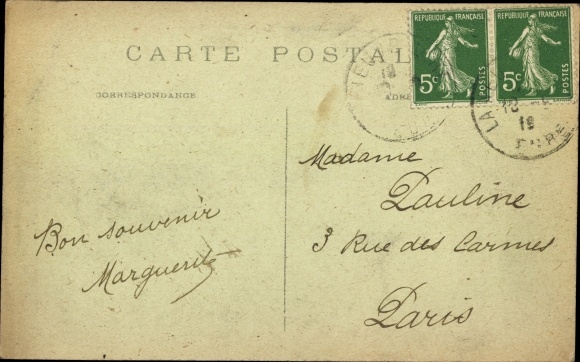 CARTE POSTAL
CORRESPONDANCE
ADRE
REPUBLIQUE FRANÇAISE
5c POSTES
REPUBLIQUE FRANÇAISE
5c POSTES
LA
19
EURE
Madame
Pauline
3 Rue des Carmes
Paris
Bon souvenir
Marguerite